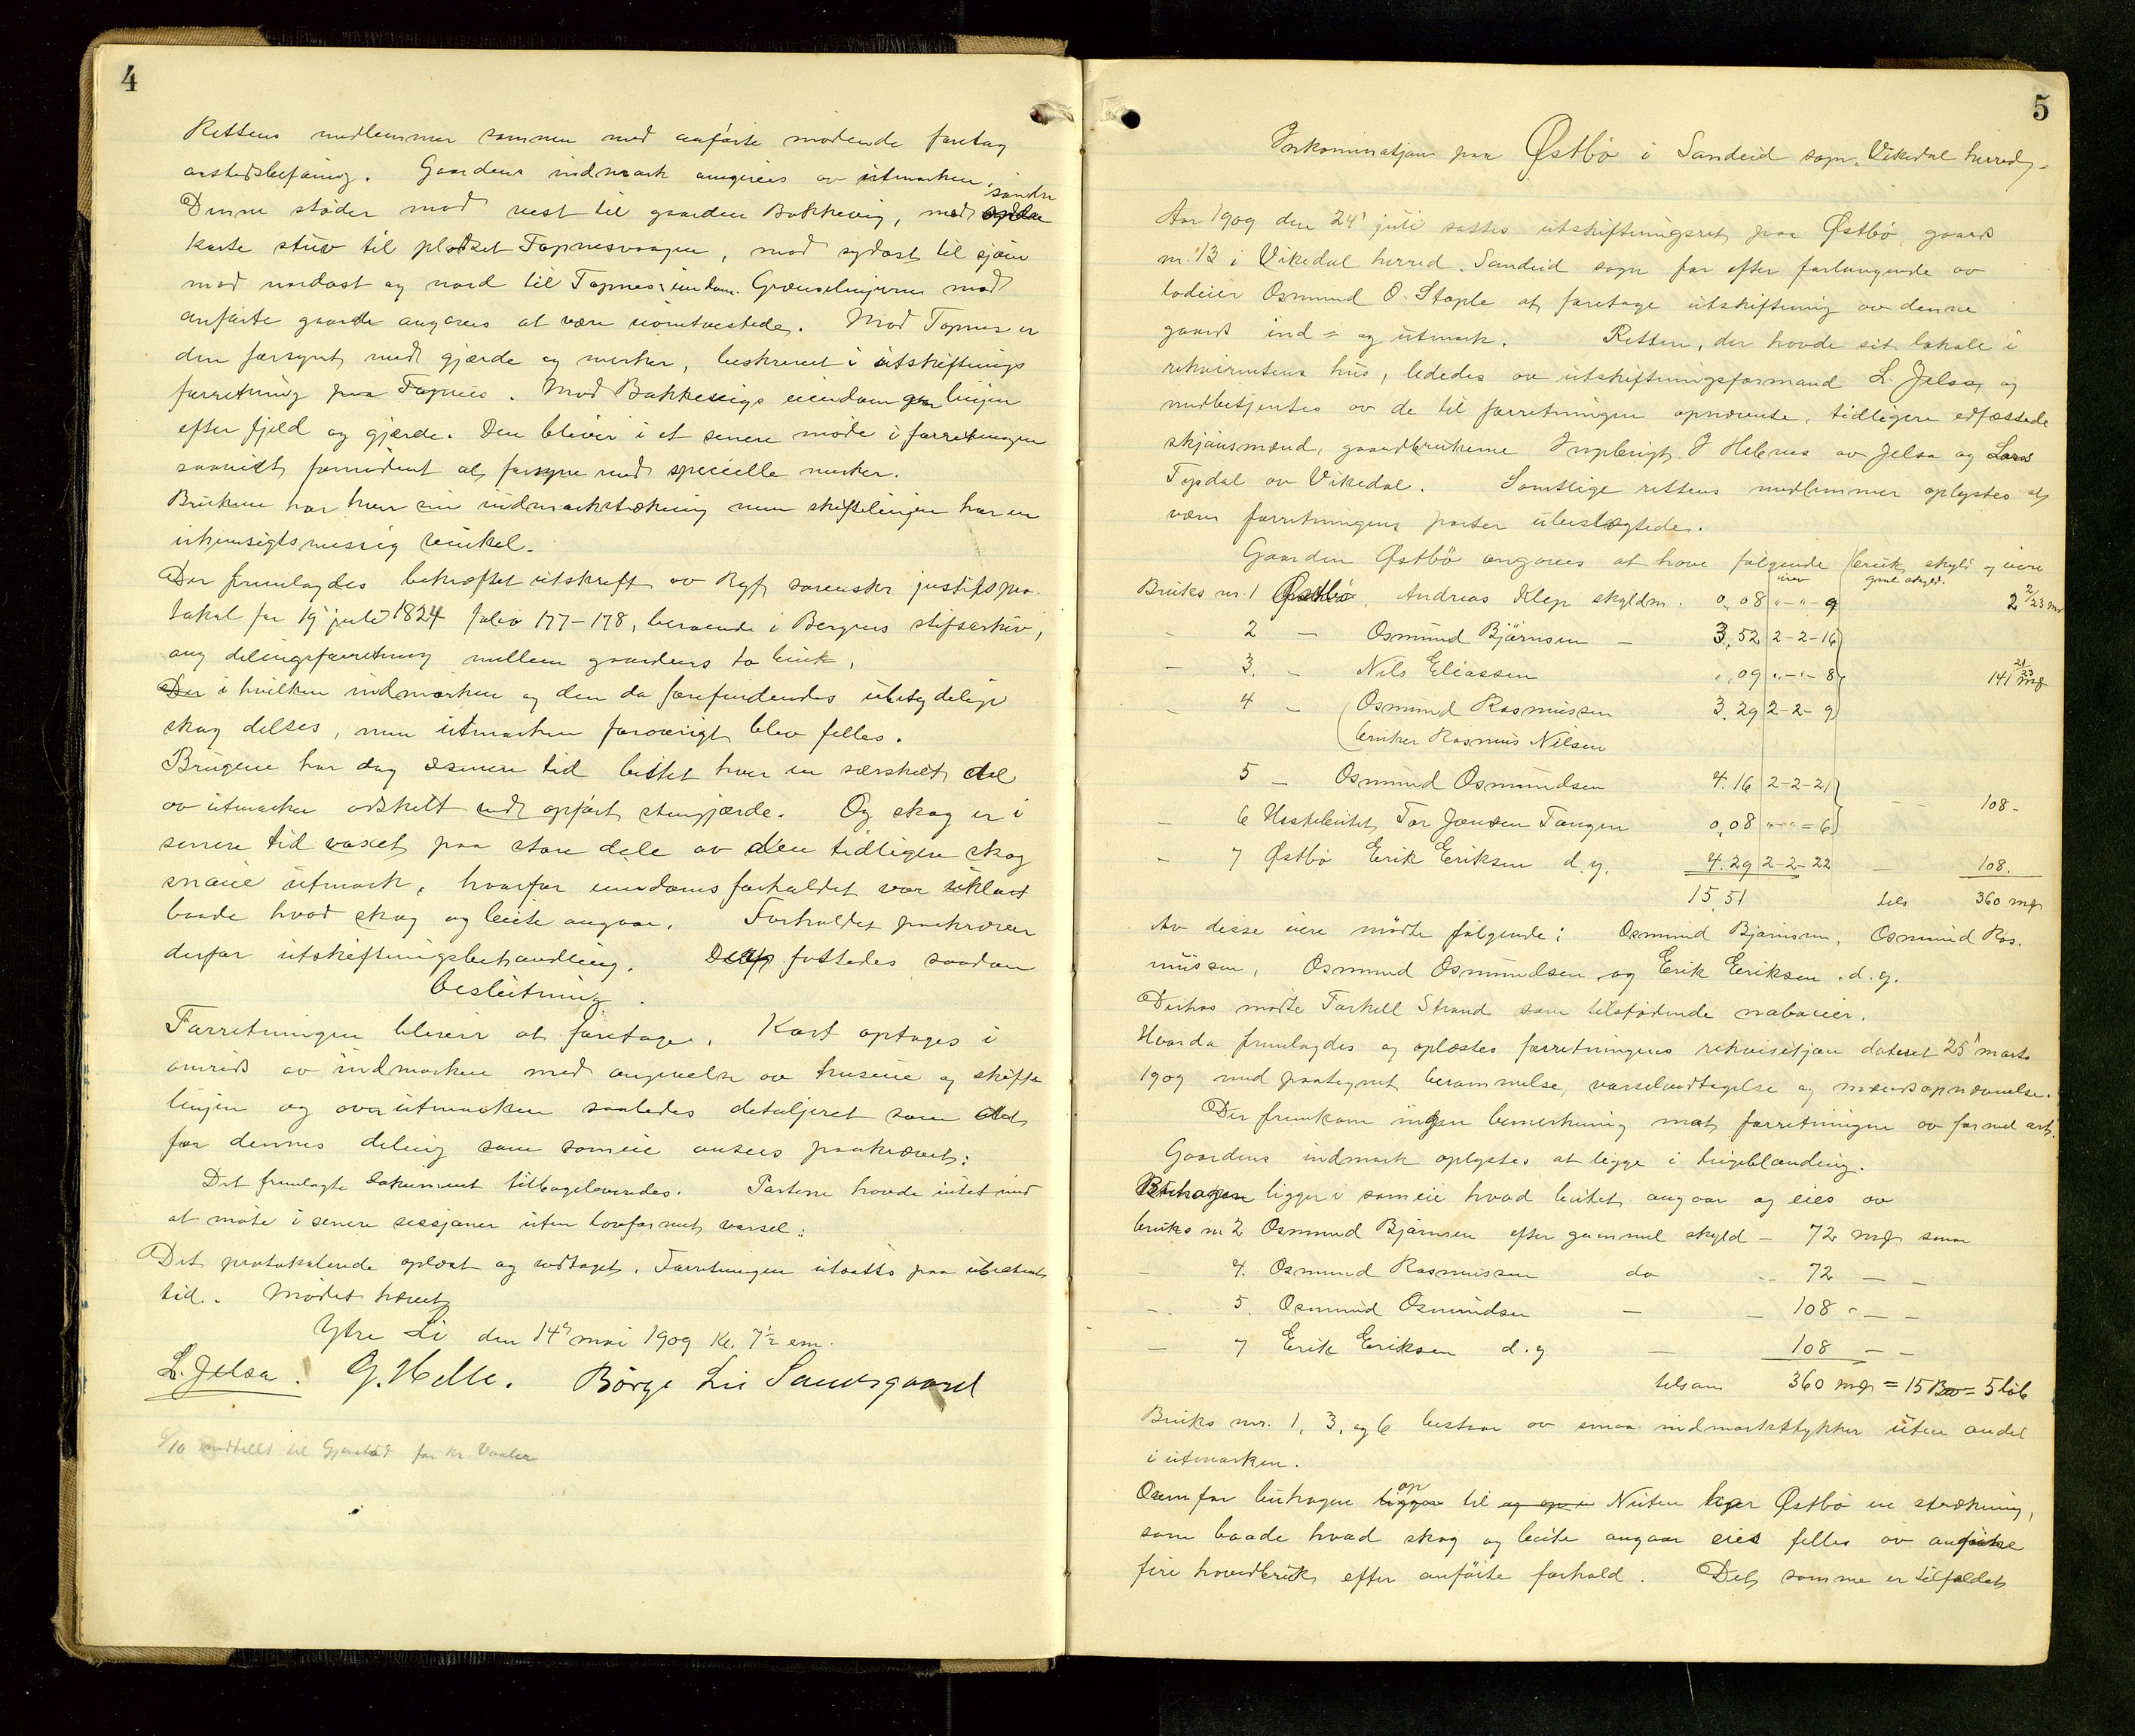 4
Rettens medlemmer sammen med anførte mødende foretog
aastedsbefaring. Gaardens indmark omgives av utmarken.
Denne støder mod vest til gaarden Bakkevig, mod søndre
kaste stuv til pladset Tapnesvaagen, mod sydøst til sjøen
mod nordost og nord til Tapnes eiendom. Grænselinjerne mod
anførte gaarde angaves at være uomtvistede. Mod Tapnes er
den forsynt med gjærde og merker, beskrevet i utskiftnings
forretning paa Tapnes. Mod Bakkevigs eiendom gaar linjen
efter fjeld og gjærde. Den blivir i et senere møde i forretningen
saavidt fornødent at forsyne med specielle merker.
Brukene har hver sin indmarkstrækning men skiftelinjen har en
uhensigtsmessig vinkel.
Der fremlagdes bekræftet utskrift av Ryf. sorenskr. justitspro-
tokol for 19 juli 1824 folio 177-178, beroende i Bergens stifsarkiv,
ang. delingsforretning mellem gaardens to bruk,
i hvilken indmarken og den da forefindendes ubetydelige
skog deltes, men utmarken forøvrigt blev felles.
Brugene har dog i senere tid bettet hver en særskilt del
av utmarken adskilt ved opført stengjærde. Og skog er i
senere tid vaxet paa store dele av den tidligere skog
snaue utmark, hvorfor eiendomsforholdet var uklart
baade hvad skog og beite angaar. Forholdet paakræver
derfor utskiftningsbehandling. Derfor fattedes saadan
beslutning.
Forretningen blivir at foretage. Kart optages i
omrids av indmarken med angivelse av husene og skifte
linjen og over utmarken saaledes detaljeret som det
for dennes deling som someie ansees paakrævet:
Det fremlagte dokument tilbageleveredes. Partene havde intet imod
at møte i senere sessjoner uten lovformet varsel:
Det protokolerede oplæst og vedtaget. Forretningen utsattes paa ubestemt
tid. Mødet hævet
Ytre Li den 14' mai 1909 Kl. 7½ em.
L. Jelsa. G. Helle. Børge Lie Sandsgaard
6/10 meddelt til Gjerstad for kr. Vaaler
5
Inkaminatjon paa Østbø i Sandeid sogn, Vikedal herred.
Aar 1909 den 24' juli sattes utskiftningsret paa Østbø, gaards
nr. 13 i Vikedal herred, Sandeid sogn for efter forlangende av
lodeier Osmund O. Stople at foretage utskiftning av denne
gaards ind= og utmark. Retten, der havde sit lokale i
rekvirentens hus, lededes av utskiftningsformand L. Jelsa, og
medbetjentes av de til forretningen opnævnte, tidligere edfæstede
skjønsmænd, gaardbrukerne Ingebrigt J Helgnes av Jelsa og Lars
Tysdal av Vikedal. Samtlige rettens medlemmer oplystes at
være forretningens parter ubeslegtede.
Gaarden Østbø angaves at have følgende bruk, skyld og eiere
urev gml. skyld.
Bruks nr. 1 Østbø, Andreas Klep skyldm. 0,08 "-"-9 2 2/23 mrk
- 2 - Osmund Bjørnsen - 3,52 2-2-16
- 3. - Nils Eliassen ",09 "-"-8 141 21/23 mrk
- 4 - Osmund Rasmussen 3,29 2-2-9
bruker Rasmus Nilsen
5 - Osmund Osmundsen 4.16 2-2-21
- 6 Hestebeitet, Tor Jonsen Tangen 0,08 "-"=6 - - 108-
- 7 Østbø Erik Eriksen d.y. 4.29 2-2-22 - 108.
15,51 tils 360 mrk
Av disse eiere mødte følgende: Osmund Bjørnsen, Osmund Ras-
mussen, Osmund Osmundsen og Erik Eriksen d.y.
Derhos mødte Torkell Strand som tilstødende naboeier.
Hvorda fremlagdes og oplæstes forretningens rekvisitjon dateret 25' marts
1909 med paategnet berammelse, varselvedtagelse og mændsopnævnelse.
Der fremkom ingen bemerkning mot forretningen av formel art.
Gaardens indmark oplystes at ligge i teigeblanding.
Buhagen ligger i someie hvad beitet angaar og eies av
bruks nr 2 Osmund Bjørnsen efter gammel skyld - 72 mrk smør
- 4. Osmund Rasmussen do - 72 - -
- 5. Osmund Osmundsen - - 108 " - -
- 7 Erik Eriksen d.y - 108 - -
tilsam 360 mrk = 15 = 5 løb
Bruks nr. 1, 3, og 6 bestaar av smaa indmarkstykker uten andel
i utmarken.
Ovenfor buhagen op til Nuten har Østbø en strækning,
som baade hvad skog og beite angaar eies felles av anførte
fire hovedbruk efter anførte forhold. Det samme er tilfeldet